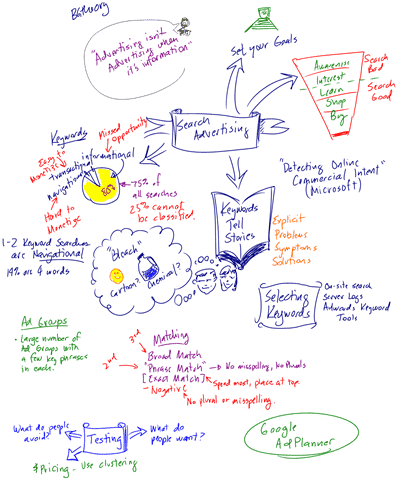 "Advertising isn't
Advertising when
it's information"
Set your Goals
Awareness
Interest
Learn
Shop
Buy
Search
Bad
Search
Good
Search
Advertising
Keywords
Missed
Opportunity
Easy to
Monetize
informational
transactional
navigational
Hard to
Monetize
80%
75% of
all searches
25% cannot
be classified.
"Detecting Online
Commercial Intent"
(Microsoft)
Keywords
Tell
Stories
Explicit
Problems
Symptoms
Solutions
1-2 Keyword Searches
are Navigational
19% are 4 words
"Bleach"
Cartoon?
Chemical?
Selecting
Keywords
On-site search
Server Logs
Adwords Keyword
Tools
Ad Groups
• Large number of
Ad Groups with
a few key phrases
in each.
Matching
3rd
Broad Match
2nd
"Phrase Match" → No misspelling, No Plurals
[Exact Match] Spend most, place at top.
- Negative
No plural or misspelling.
What do people
avoid?
Testing
What do
people want?
$ Pricing - Use clustering
Google
Ad Planner